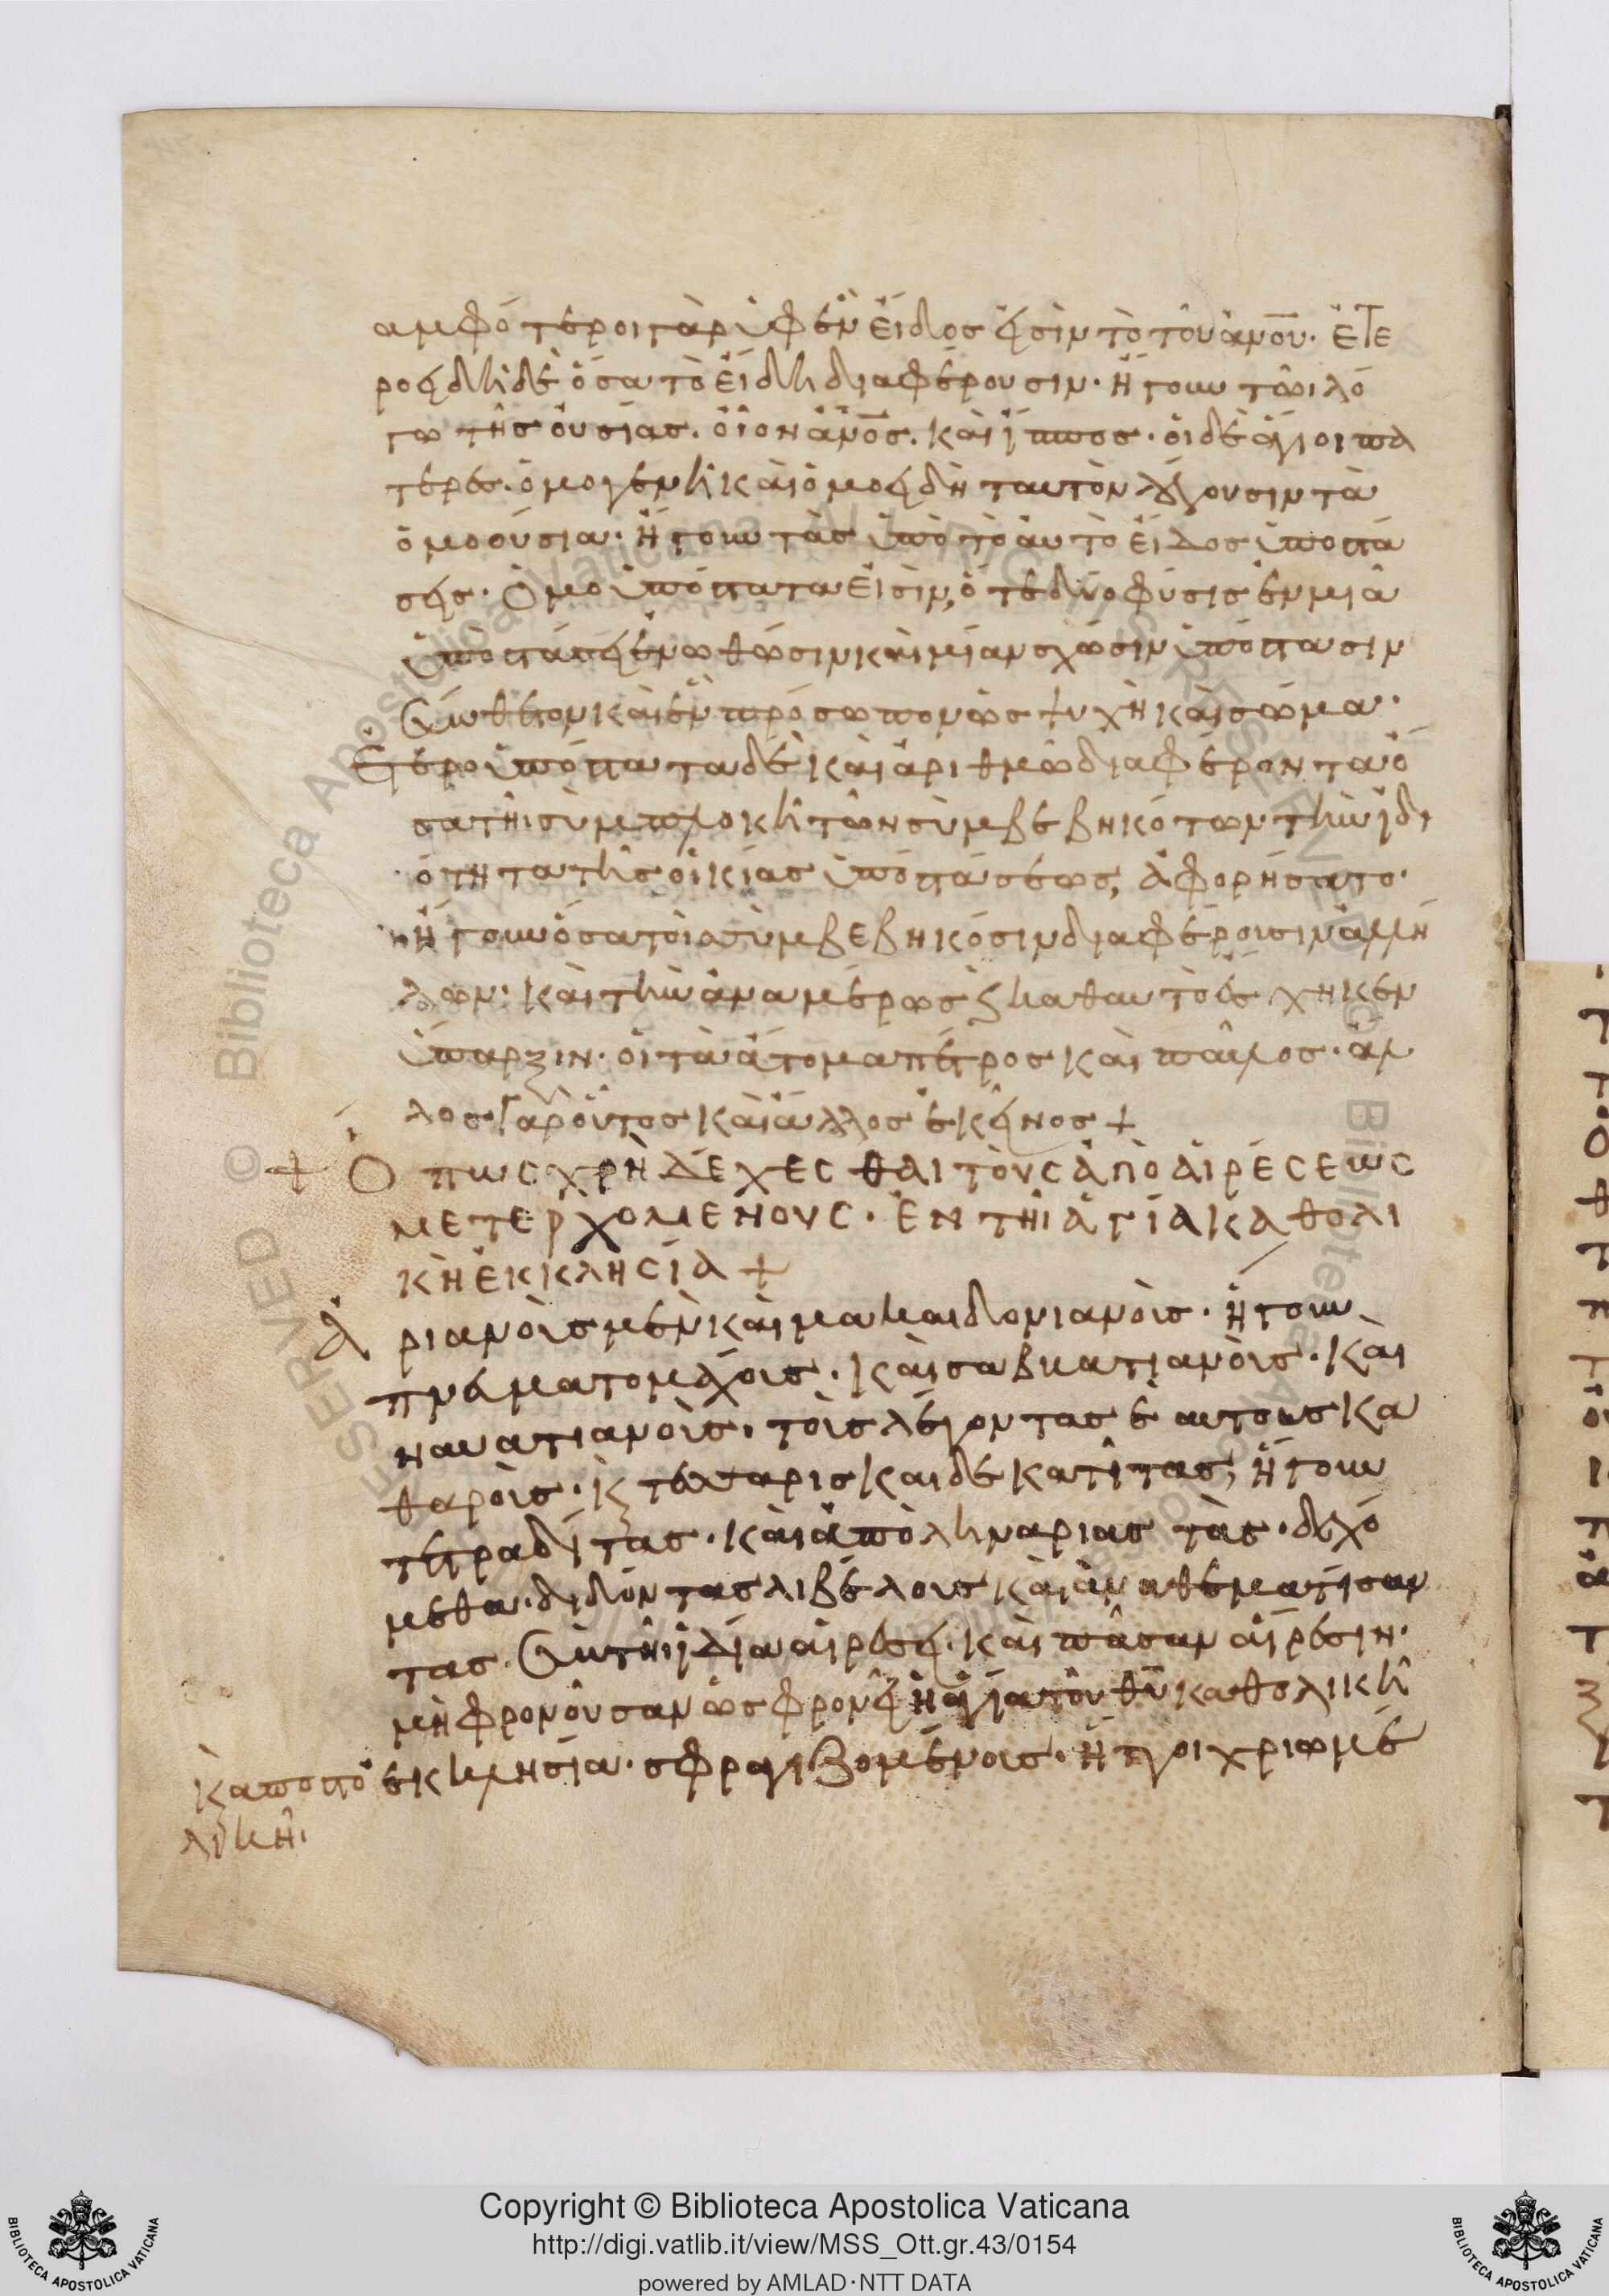 αμφότεροι γὰρ ὑφ ἓν εἶδος εἰσὶν τὸ τοῦ ἀνου· ἑτε
ροειδὴ δὲ ὅσα τὸ εἴδη διαφέρουσιν· ἤγουν τῶι λό
γω τῆς οὐσίας· οἷον ἀνος· καὶ ἵππος· οἱ δὲ ἅγιοι πα
τέρες· ὁμογενὴ καὶ ὁμοειδὴ ταυτὸν λέγουσιν τὰ
ὁμοούσια· ἤγουν τὰς ὑπὸ τὸ αὐτὸ εἶδος ὑποστά
σεις· Ὁμοϋπόστατα εἰσὶν, ὅτε δύο φύσις ἐν μιᾶ
ὑποστάσει ἑνωθώσιν καὶ μίαν σχώσιν ὑπόστασιν
σύνθετον καὶ ἓν πρόσωπον ὡς ψυχὴ καὶ σώμα·
Ετεροϋπόστατα δὲ καὶ ἀριθμῶ διαφέροντα ὅ
σα τῆι συμπλοκῆ τῶν συμβεβηκότων τὴν ἰδι
ότητα τῆς οἰκίας ὑποστάσεως, ἀφορήσατο·
ἤγουν ὅσα τοῖς συμβεβηκόσιν διαφέρουσιν ἀλλή
λων· καὶ τὴν ἀναμέρως καθαυτὸ ἐσχηκεν
ὕπαρξιν· οἱ τὰ ἄτομα πέτρος καὶ παῦλος· ἄλ
λος γαρ οὕτος καὶ ἄλλος ἐκεῖνος +
+ Ὅπως χρὴ δέχεσθαι τοὺς ἀπὸ αἱρέσεως
μετερχομένους· ἐν τῆι ἁγία καθολι
κὴ ἐκκλησία +
Ἀριανοὺς μὲν καὶ μακαιδονιανοὺς· ἤγουν
πνάματομάχους· καὶ σαβκατιανοὺς· καὶ
ναυατιανοὺς· τοὺς λέγοντας ἑαυτοὺς κα
θαροὺς· κ τεσσαρισκαιδεκατίτας, ἤγουν
τετραδίτας· καὶ ἀπολιναριαστὰς· δεχό
μεθα· διδόντας λιβέλους καὶ ἀναθεματίσαν
τας σὺν τῆι ἰδία αἱρέσει· καὶ πᾶσαν αἵρεσιν·
μὴ φρονοῦσαν ὡς φρονεῖ ἡ ἁγία τοῦ θυ καθολικὴ
ἐκκλησία· σφραγιζομένους· ἤγοι χριωμέ
κ αποστο
λικῆ·
Copyright © Biblioteca Apostolica Vaticana
http://digi.vatlib.it/view/MSS_Ott.gr.43/0154
powered by AMLAD·NTT DATA